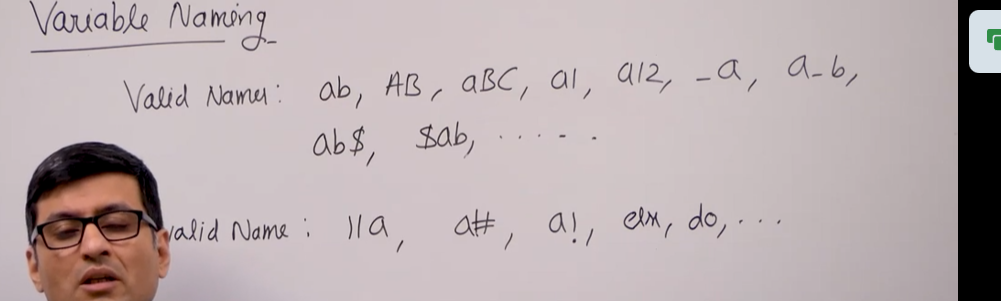 Variable Naming
Valid Names: ab, AB, aBC, a1, a12, _a, a_b,
ab$, $ab, ......
valid Name: 11a, a#, a!, do, ...